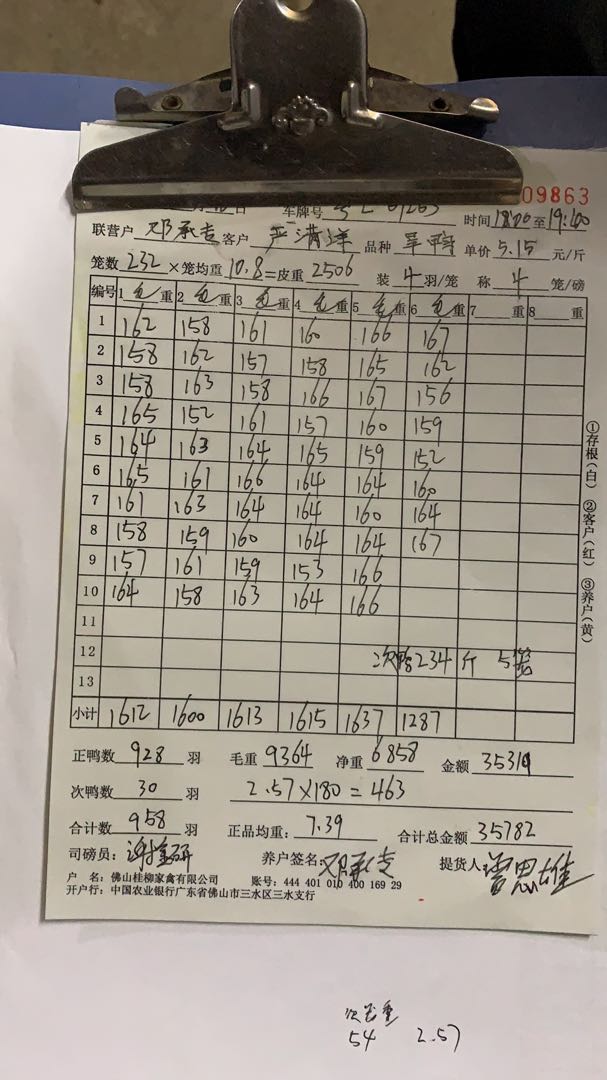 09863
日 车牌号 时间 18:00 至 19:00
联营户 邓承志 客户 严满洋 品种 旱鸭 单价 5.15 元/斤
笼数 232 ×笼均重 10.8 =皮重 2506 装 4 羽/笼 称 4 笼/磅
编号 1 毛 重 2 毛 重 3 毛 重 4 毛 重 5 毛 重 6 毛 重 7 重 8 重
1 162 158 161 160 166 167
2 158 162 157 158 165 162
3 158 163 158 166 167 156
4 165 152 161 157 160 159
5 164 163 164 165 159 152
6 165 161 166 164 164 160
7 161 163 164 164 160 164
8 158 159 160 164 164 167
9 157 161 159 153 166
10 164 158 163 164 166
11
12 次鸭 234 斤 5笼
13
小计 1612 1600 1613 1615 1637 1287
正鸭数 928 羽 毛重 9364 净重 6858 金额 35319
次鸭数 30 羽 2.57×180=463
合计数 958 羽 正品均重: 7.39 合计总金额 35782
司磅员: 养户签名: 邓承志 提货人
户 名: 佛山桂柳家禽有限公司 账号: 444 401 010 400 169 29
开户行: 中国农业银行广东省佛山市三水区三水支行
①存根(白) ②客户(红) ③养户(黄)
次 重
54 2.57